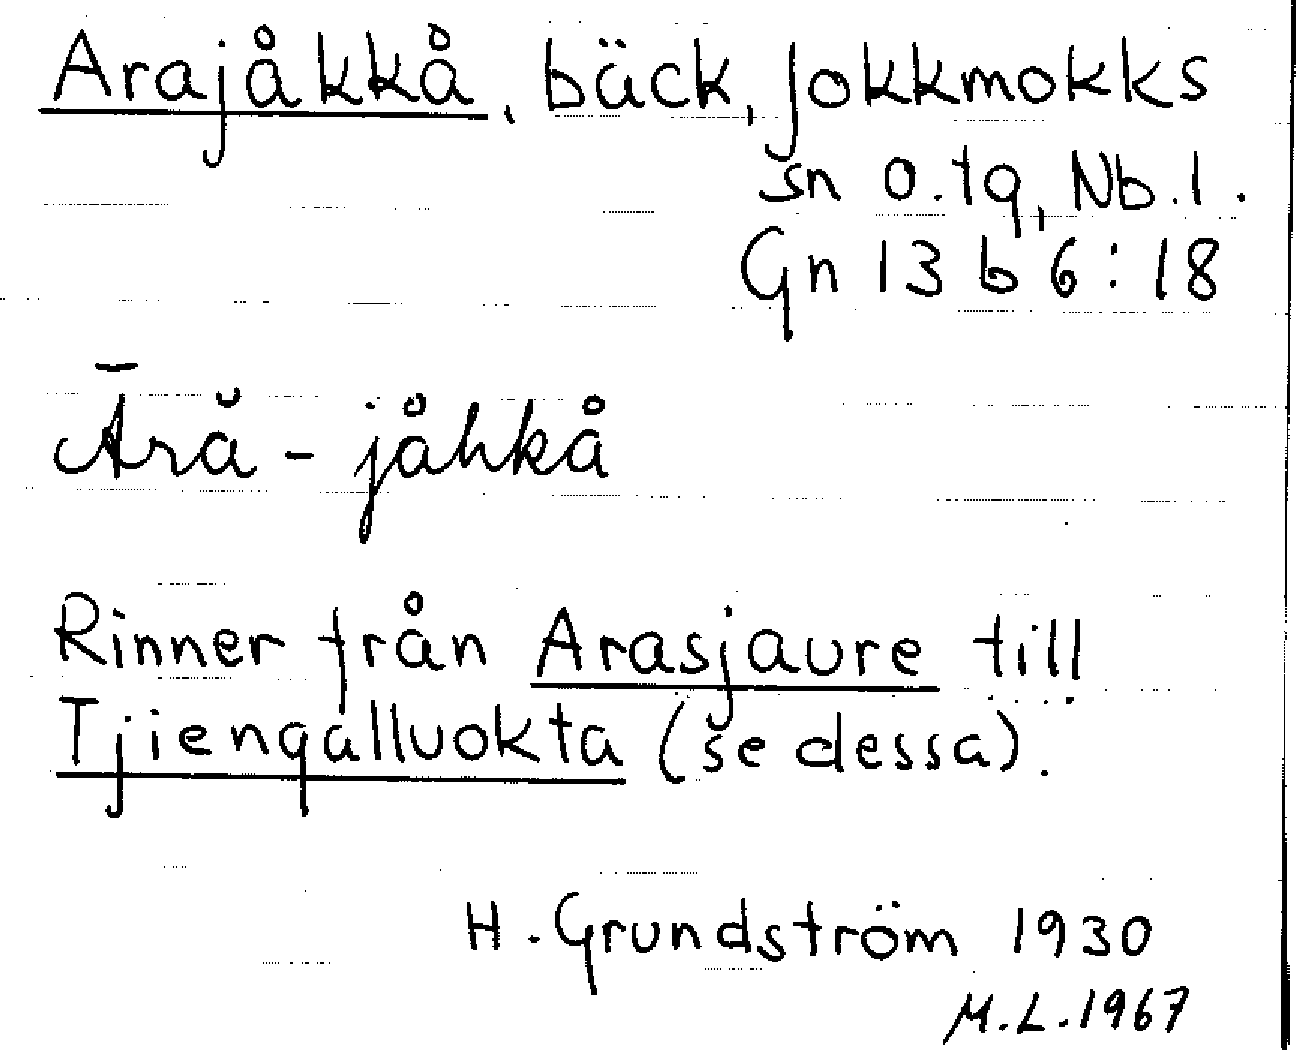 Arajåkkå, bäck, Jokkmokks
sn o. tg, Nb. l.
Gn 13 b 6:18
Āră-jåhkå
Rinner från Arasjaure till
Tjiengalluokta (se dessa).
H. Grundström 1930
M.L. 1967